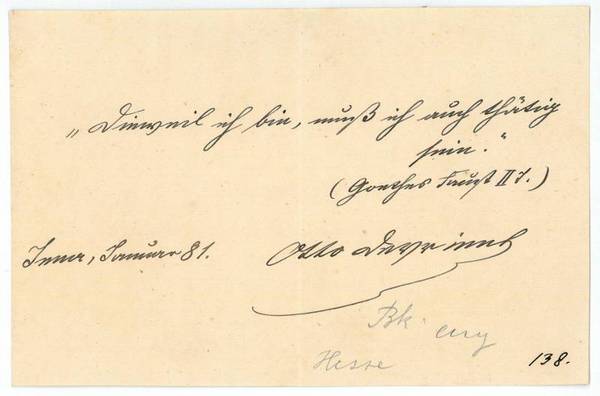 „Dieweil ich bin, muß ich auch thätig
sein."
(Goethes Faust II T.)
Jena, Januar 81.
Otto Devrient
Bk.
Hesse
138.